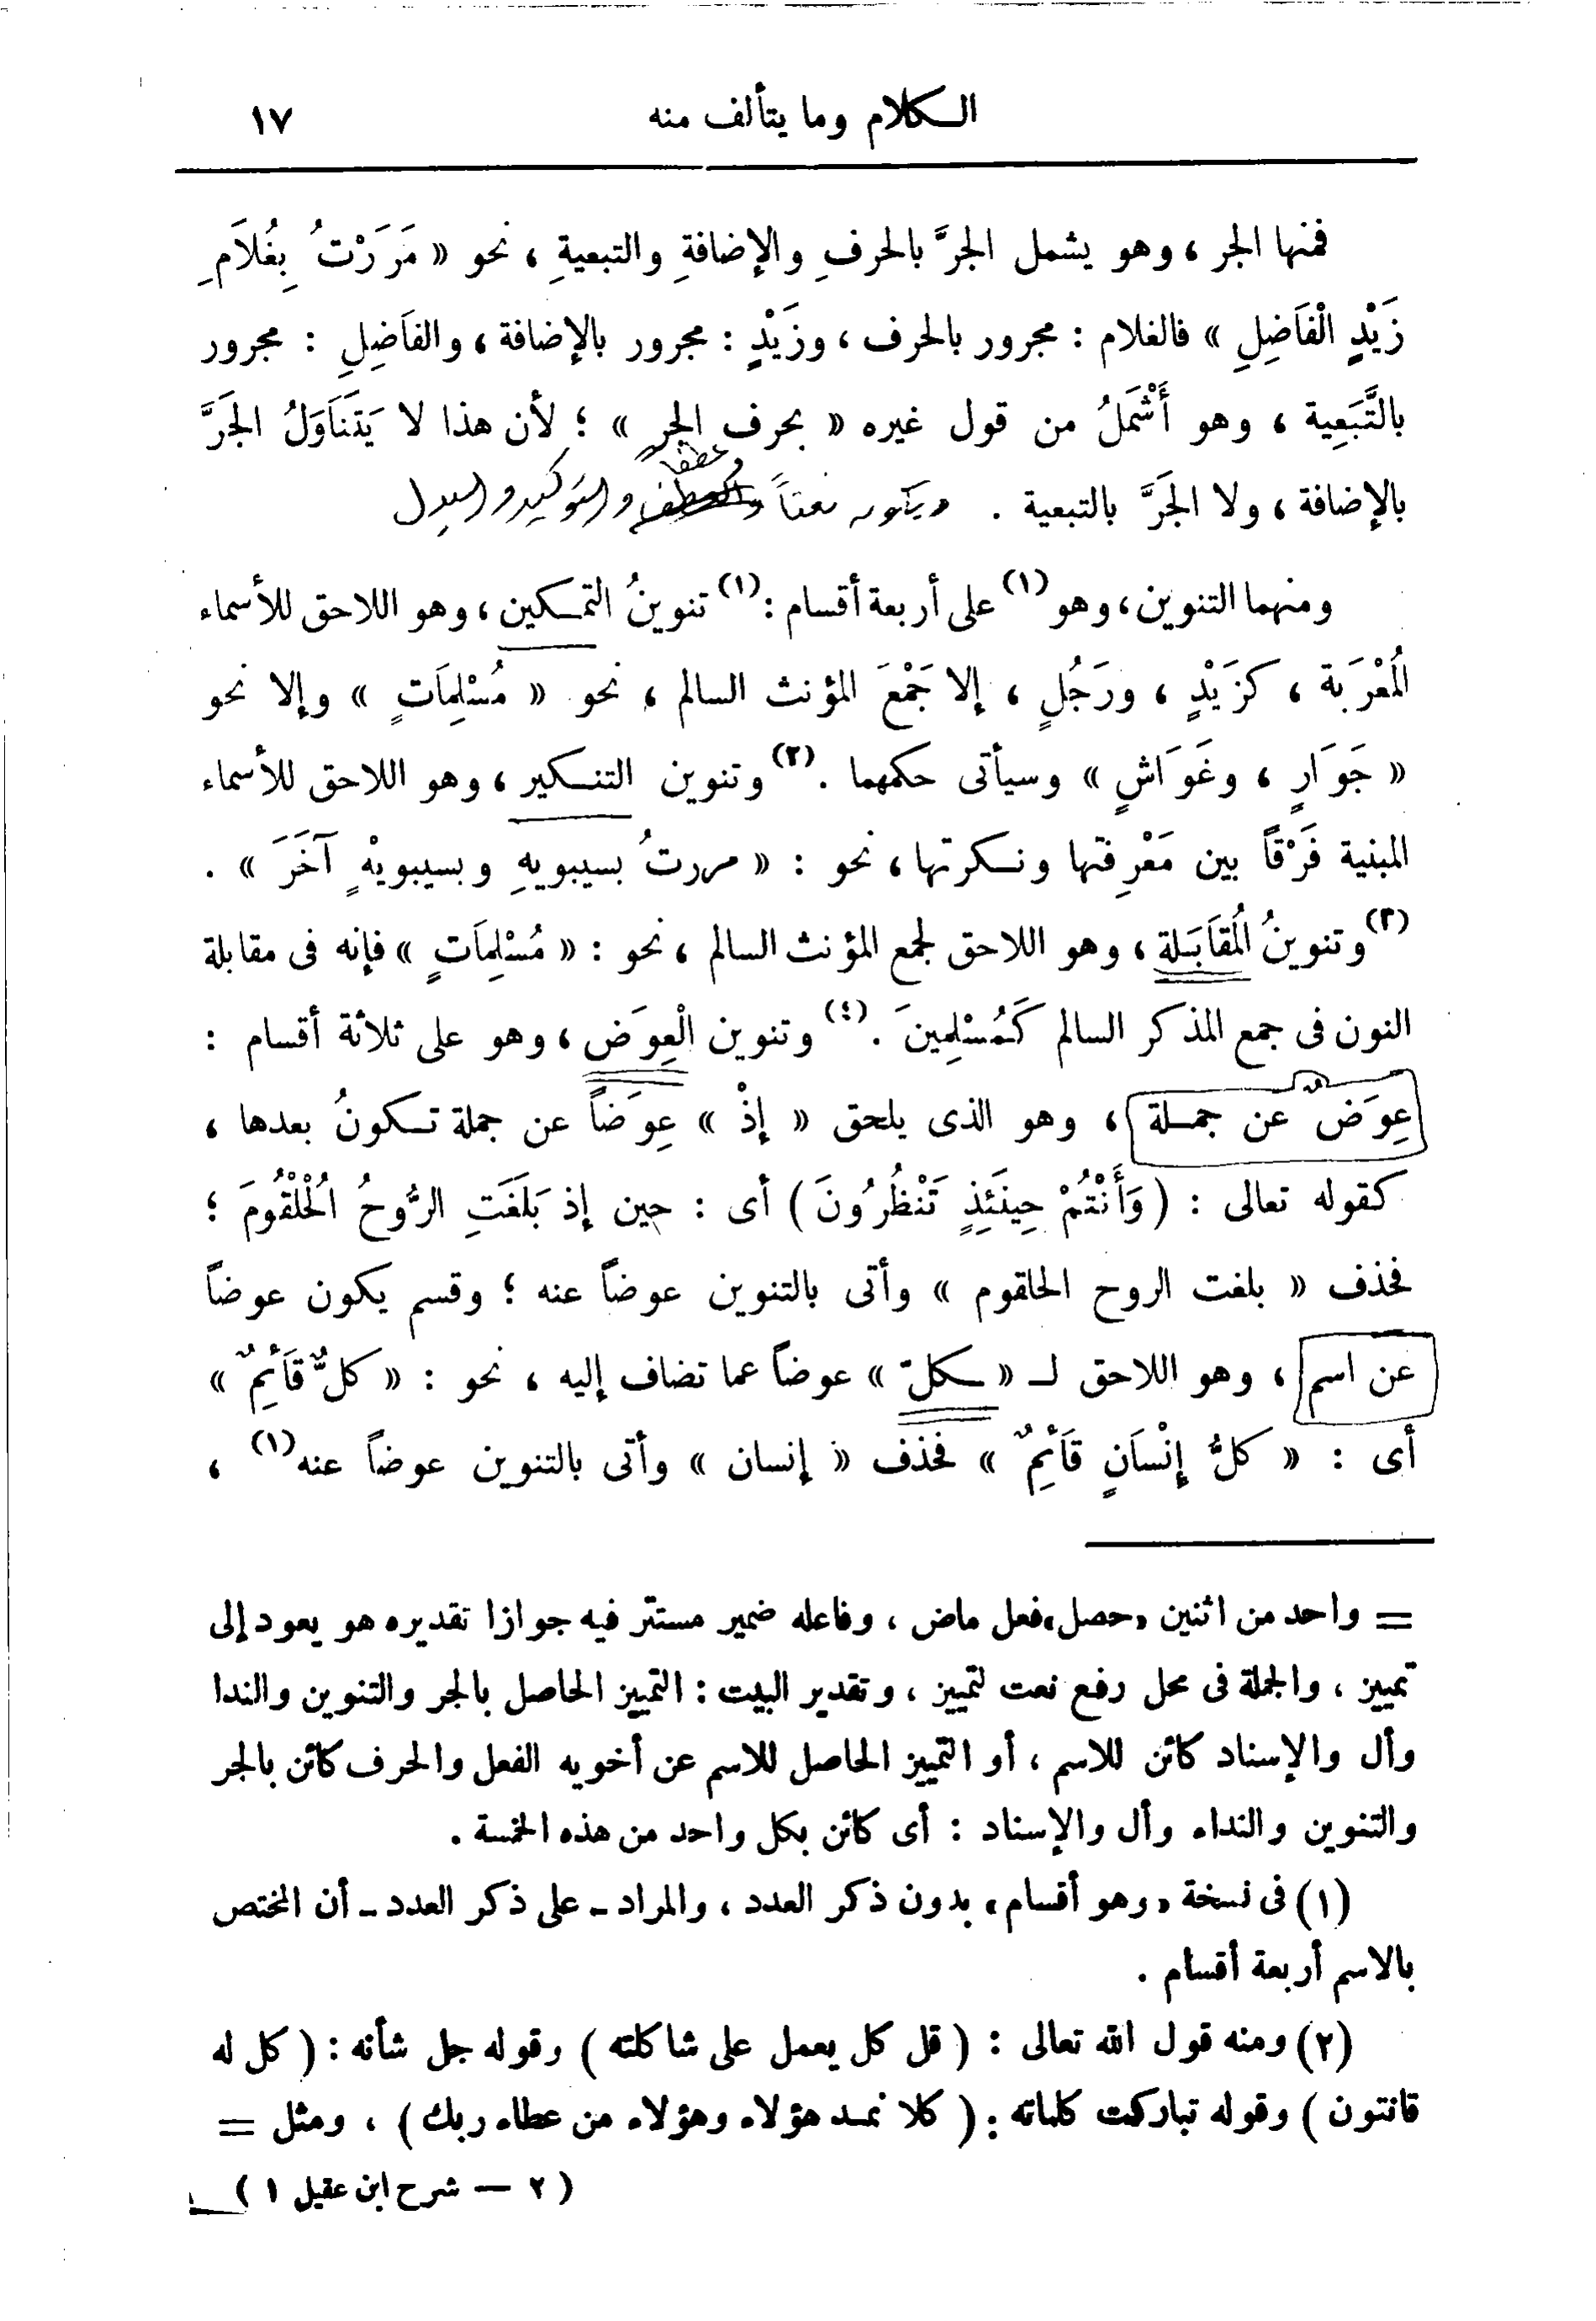 الكلام وما يتألف منه ١٧
فمنها الجر ، وهو يشمل الجرَّ بالحرفِ والإضافةِ والتبعيةِ ، نحو « مَرَرْتُ بِغُلاَمِ
زَيْدٍ الْفَاضِلِ » فالغلام : مجرور بالحرف ، وزَيْدٍ : مجرور بالإضافة ، والفَاضِلِ : مجرور
بالتَّبَعِية ، وهو أَشْمَلُ من قول غيره « بحرف الجر » ؛ لأن هذا لا يَتَنَاوَلُ الجَرَّ
بالإضافة ، ولا الجَرَّ بالتبعية . ويكون نعتاً وعطفا والتوكيد والبدل
ومنهما التنوين ، وهو (١) على أربعة أقسام : (١) تنوينُ التمكين ، وهو اللاحق للأسماء
المُعْرَبة ، كزَيْدٍ ، ورَجُلٍ ، إلا جَمْعَ المؤنث السالم ، نحو « مُسْلِمَاتٍ » وإلا نحو
« جَوَارٍ ، وغَوَاشٍ » وسيأتى حكمهما . (٢) وتنوين التنكير ، وهو اللاحق للأسماء
المبنية فَرْقاً بين مَعْرِفتها ونكرتها ، نحو : « مررتُ بسيبويهِ وبسيبويْهٍ آخَرَ » .
(٣) وتنوينُ المُقَابَلة ، وهو اللاحق لجمع المؤنث السالم ، نحو : « مُسْلِمَاتٍ » فإنه فى مقابلة
النون فى جمع المذكر السالم كَمُسْلِمِينَ . (٤) وتنوين الْعِوَض ، وهو على ثلاثة أقسام :
عِوَضٌ عن جملة ، وهو الذى يلحق « إذْ » عِوَضاً عن جملة تكونُ بعدها ،
كقوله تعالى : ( وَأَنْتُمْ حِينَئِذٍ تَنْظُرُونَ ) أى : حين إذ بَلَغَتِ الرُّوحُ الْحُلْقُومَ ؛
فحذف « بلغت الروح الحلقوم » وأتى بالتنوين عوضاً عنه ؛ وقسم يكون عوضاً
عن اسم ، وهو اللاحق لـ « كلّ » عوضاً عما تضاف إليه ، نحو : « كلٌّ قَائِمٌ »
أى : « كلُّ إنْسَانٍ قَائِمٌ » فحذف « إنسان » وأتى بالتنوين عوضاً عنه (١) ،
= واحد من اثنين «حصل» فعل ماض ، وفاعله ضمير مستتر فيه جوازا تقديره هو يعود إلى
تمييز ، والجملة فى محل رفع نعت لتمييز ، وتقدير البيت : التمييز الحاصل بالجر والتنوين والندا
وأل والإسناد كائن للاسم ، أو التمييز الحاصل للاسم عن أخويه الفعل والحرف كائن بالجر
والتنوين والنداء وأل والإسناد : أى كائن بكل واحد من هذه الخمسة .
(١) فى نسخة «وهو أقسام» بدون ذكر العدد ، والمراد ـ على ذكر العدد ـ أن المختص
بالاسم أربعة أقسام .
(٢) ومنه قول الله تعالى : ( قل كل يعمل على شاكلته ) وقوله جل شأنه : ( كل له
قانتون ) وقوله تباركت كلماته : ( كلا نمد هؤلاء وهؤلاء من عطاء ربك ) ، ومثل =
( ٢ — شرح ابن عقيل ١ )